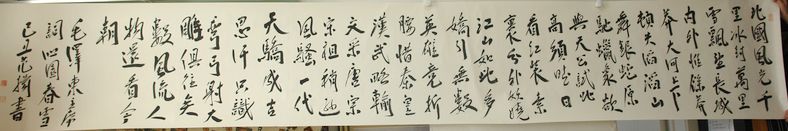 北國風光千
里冰封萬里
雪飄望長城
内外惟餘莽
莽大河上下
頓失滔滔山
舞銀蛇原
馳蠟象欲
與天公試比
高須晴日
看紅裝素
裹分外妖嬈
江山如此多
嬌引無數
英雄竞折
腰惜秦皇
漢武略輸
文采唐宗
宋祖稍遜
風騷一代
天驕成吉
思汗只識
彎弓射大
雕俱往矣
數風流人
物還看今
朝
毛澤東主席
詞沁園春雪
己丑書